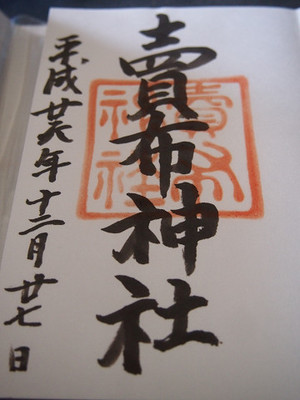 賣布神社
賣布
神社
平成廿六年十二月廿七日